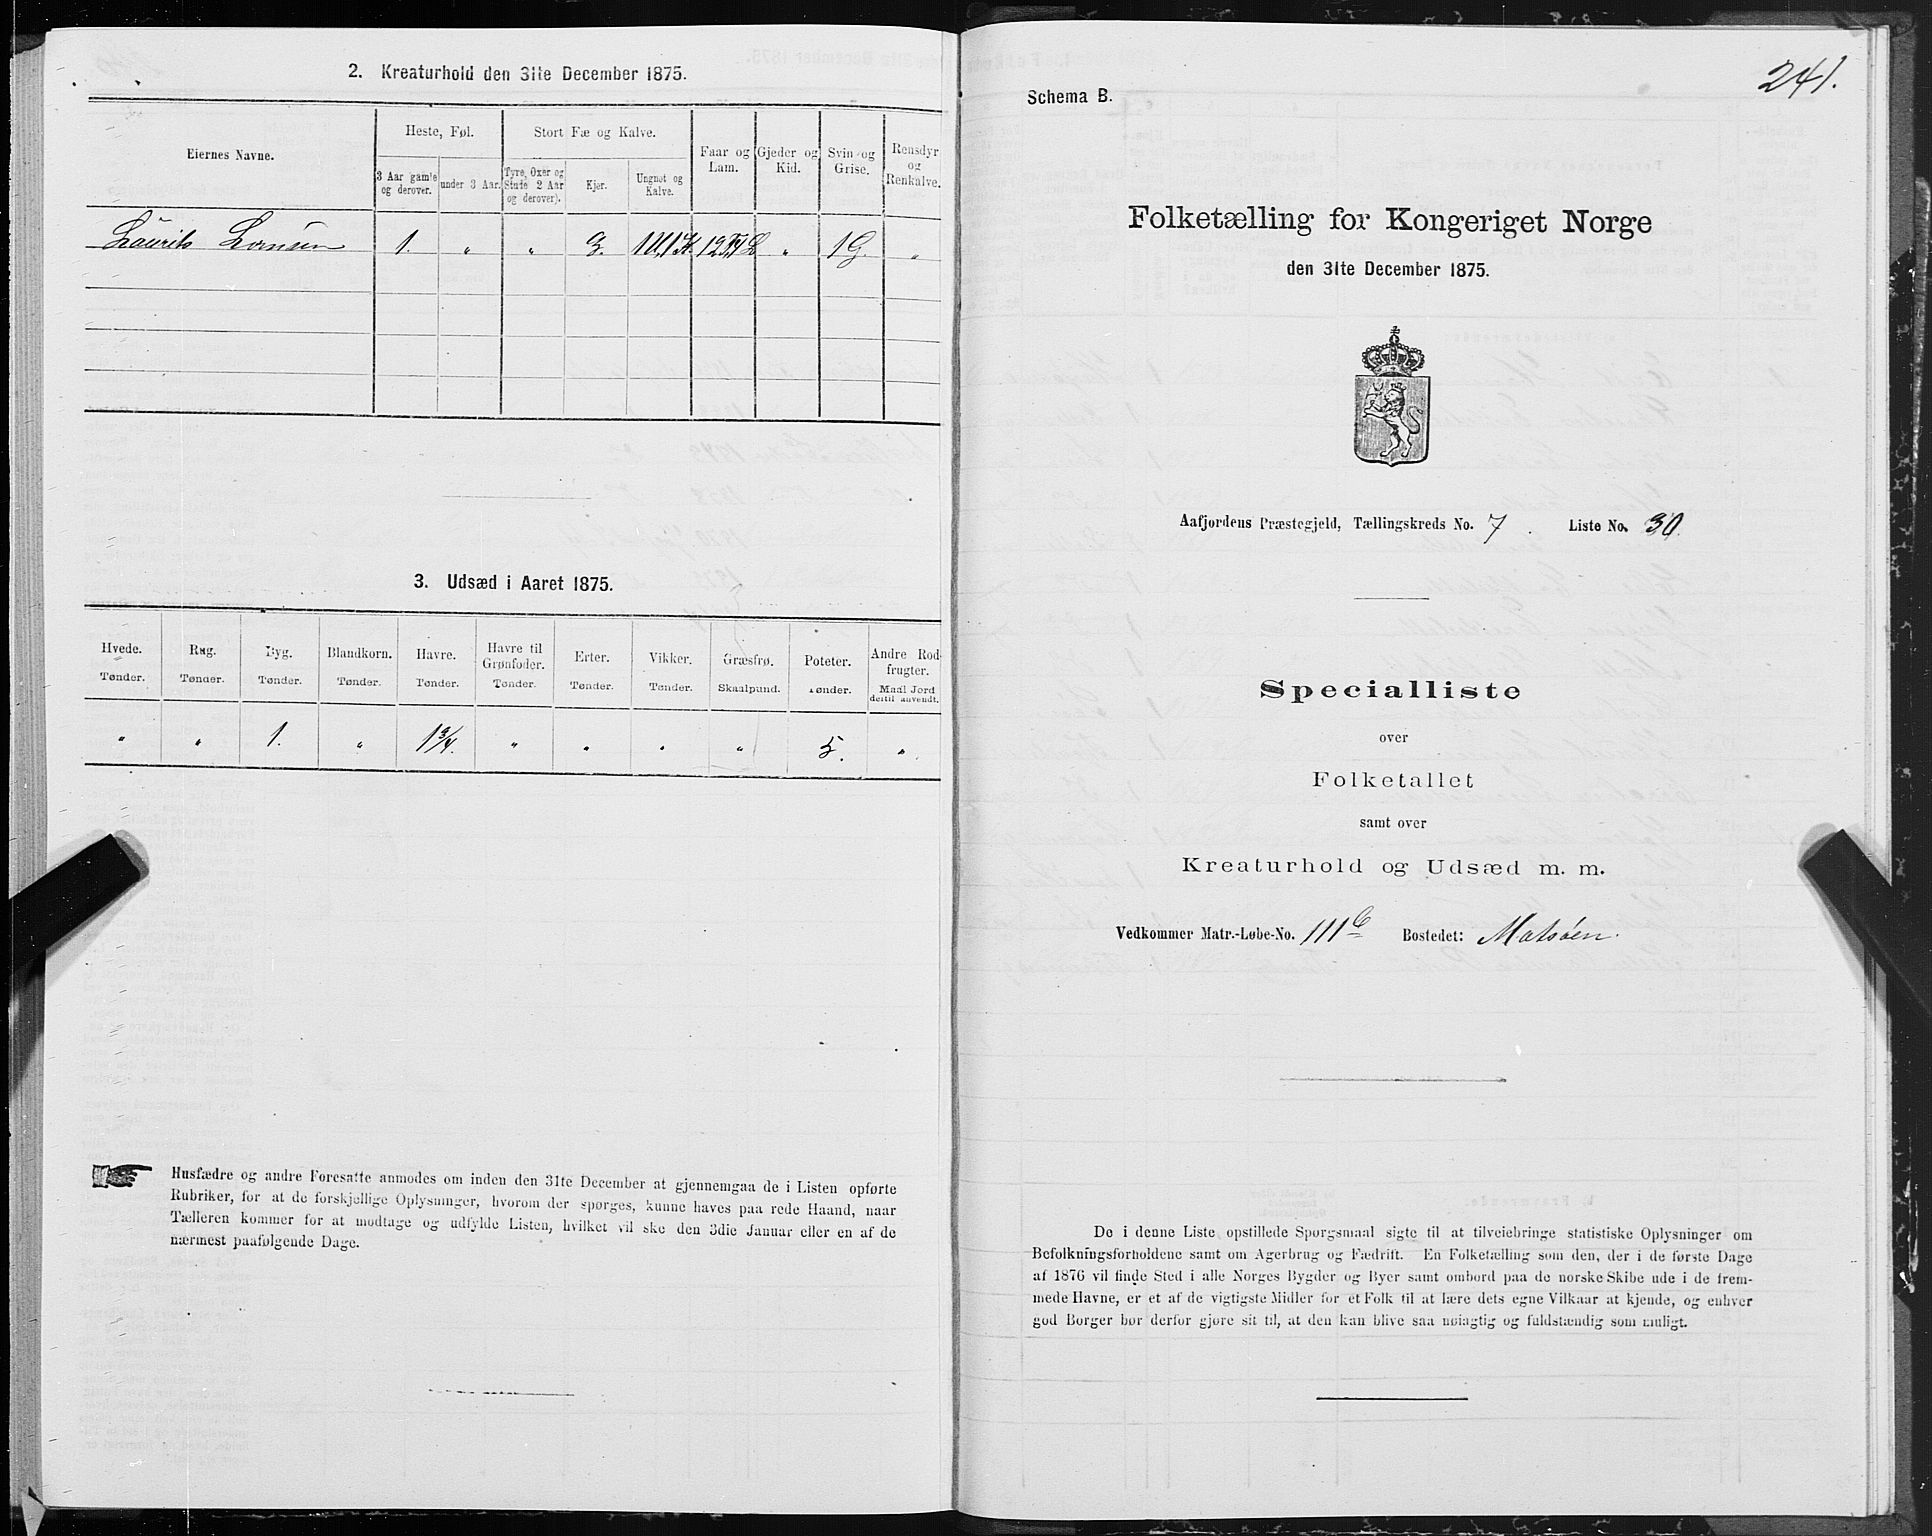 2. Kreaturhold den 31te December 1875.
Eiernes Navne.
Heste, Føl.
Stort Fæ og Kalve.
Faar og Lam.
Gjeder og Kid.
Svin og Grise.
Rensdyr og Renkalve.
3 Aar gamle og derover.
under 3 Aar.
Tyre, Oxer og Stude 2 Aar og derover).
Kjør.
Ungnøt og Kalve.
Laurits 1. " " 3. 1U, 1K. " 1G. "
3. Udsæd i Aaret 1875.
Hvede. Rug. Byg. Blandkorn. Havre. Havre til Grønfoder. Erter. Vikker. Græsfrø. Poteter. Andre Rodfrugter.
Tønder. Tønder. Tønder. Tønder. Tønder. Tønder. Tønder. Tønder. Skaalpund. Tønder. Maal Jord dertil anvendt.
" " 1. " 1 3/4. " " " " 5. "
Husfædre og andre Foresatte anmodes om inden den 31te December at gjennemgaa de i Listen opførte
Rubriker, for at de forskjellige Oplysninger, hvorom der spørges, kunne haves paa rede Haand, naar
Tælleren kommer for at modtage og udfylde Listen, hvilket vil ske den 3die Januar eller en af de
nærmest paafølgende Dage.
241.
Schema B.
Folketælling for Kongeriget Norge
den 31te December 1875.
Aafjordens Præstegjeld, Tællingskreds No. 7. Liste No. 30.
Specialliste
over
Folketallet
samt over
Kreaturhold og Udsæd m. m.
Vedkommer Matr.-Løbe-No. 111c Bostedet: Matsøen.
De i denne Liste opstillede Spørgsmaal sigte til at tilveiebringe statistiske Oplysninger om
Befolkningsforholdene samt om Agerbrug og Fædrift. En Folketælling som den, der i de første Dage
af 1876 vil finde Sted i alle Norges Bygder og Byer samt ombord paa de norske Skibe ude i de frem-
mede Havne, er et af de vigtigste Midler for et Folk til at lære dets egne Vilkaar at kjende, og enhver
god Borger bør derfor gjøre sit til, at den kan blive saa nøiagtig og fuldstændig som muligt.